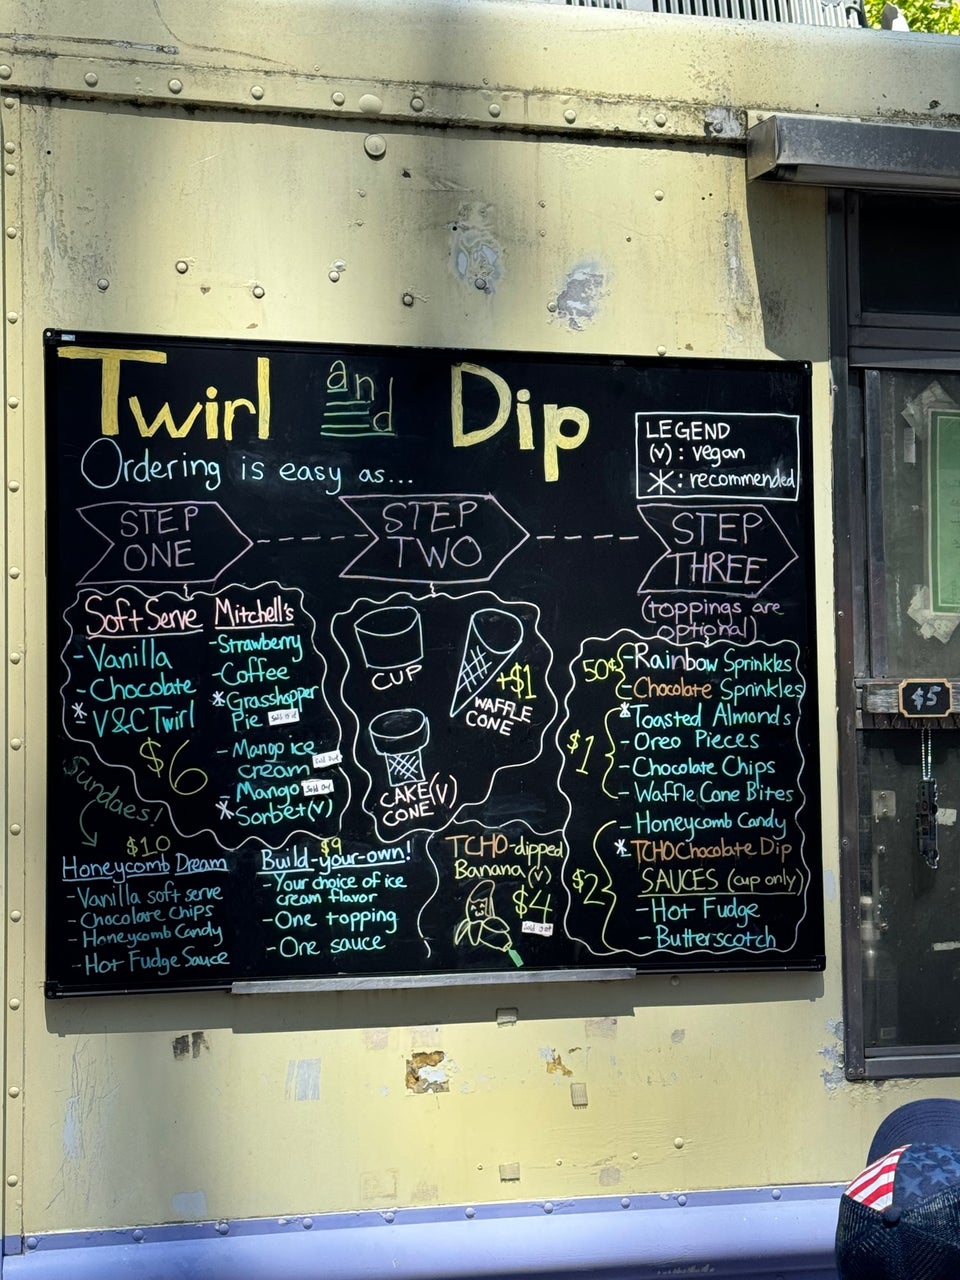 Twirl and Dip
Ordering is easy as...
LEGEND
(v) : vegan
* : recommended
STEP
ONE
STEP
TWO
STEP
THREE
(toppings are
optional)
Soft Serve
- Vanilla
- Chocolate
* V&C Twirl
$6
Mitchell's
- Strawberry
- Coffee
* Grasshopper
Pie Sold Out
- Mango ice
cream Sold Out
- Mango Sold Out
* Sorbet (v)
CUP
+$1
WAFFLE
CONE
CAKE (V)
CONE
50¢
- Rainbow Sprinkles
- Chocolate Sprinkles
$1
* Toasted Almonds
- Oreo Pieces
- Chocolate Chips
- Waffle Cone Bites
$2
- Honeycomb Candy
* TCHO Chocolate Dip
SAUCES (cup only)
- Hot Fudge
- Butterscotch
Sundaes!
$10
Honeycomb Dream
- Vanilla soft serve
- Chocolate Chips
- Honeycomb Candy
- Hot Fudge Sauce
$9
Build-your-own!
- Your choice of ice
cream flavor
- One topping
- One sauce
TCHO-dipped
Banana (v)
$4
Sold Out
$5